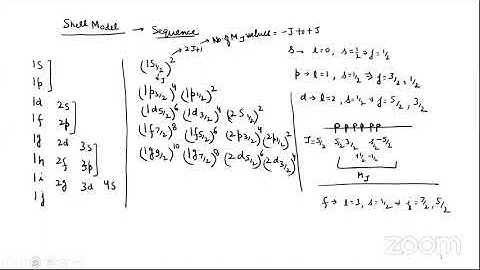 Shell Model → Sequence
→ No. of M_J values = -J to +J
→ 2J+1
1s
1p
1d 2s
1f 2p
1g 2d 3s
1h 2f 3p
1i 2g 3d 4s
1j
(1s1/2)^2
↳ J
(1p3/2)^4 (1p1/2)^2
(1d5/2)^6 (1d3/2)^4 (2s1/2)^2
(1f7/2)^8 (1f5/2)^6 (2p3/2)^4 (2p1/2)^2
(1g9/2)^10 (1g7/2)^8 (2d5/2)^6 (2d3/2)^4
s → l=0, s=1/2 ⇒ j=1/2
p → l=1, s=1/2 ⇒ j=3/2, 1/2
d → l=2, s=1/2 ⇒ j=5/2, 3/2
P P P P P P
J=5/2 5/2 3/2 3/2 -5/2
+1/2 -1/2
M_J
f → l=3, s=1/2 → j=7/2, 5/2
zoom